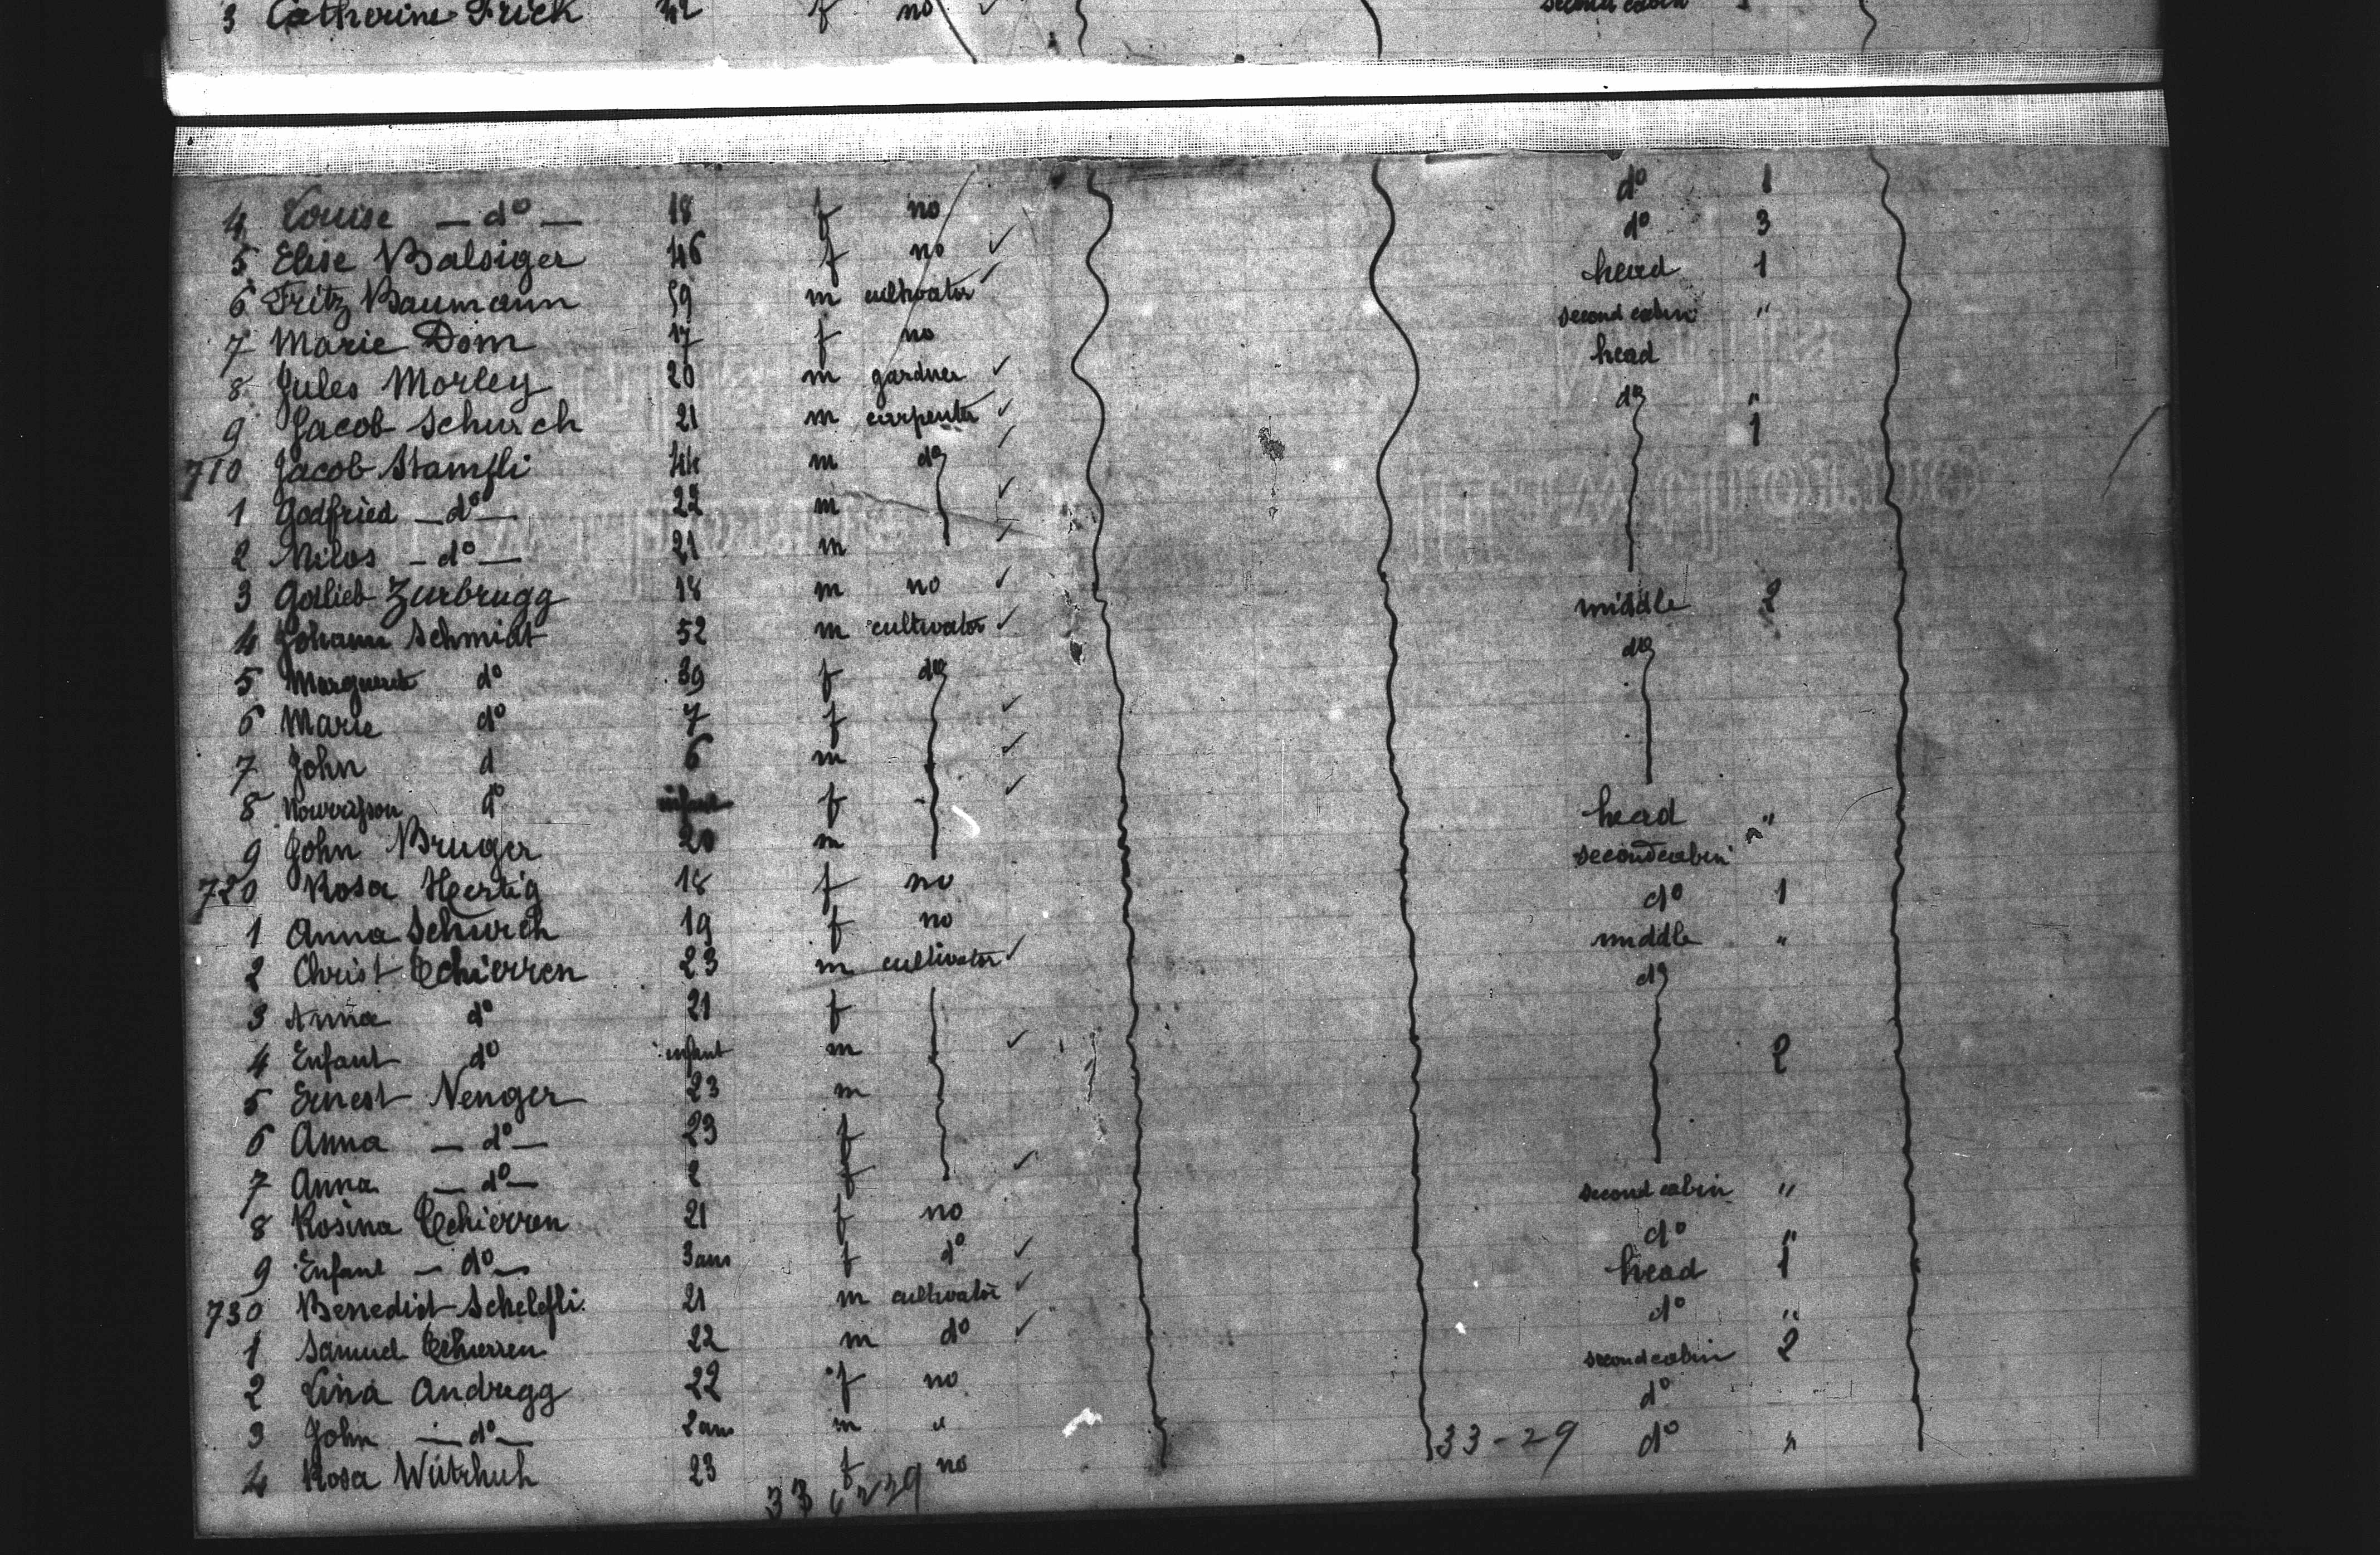 3 Catherine Frick 42 f no ✓ second cabin 1
4 Louise — do — 18 f no do 1
5 Elise Balsiger 46 f no ✓ do 3
6 Fritz Baumann 59 m cultivator ✓ head 1
7 Marie Dom 17 f no second cabin "
8 Jules Morley 20 m gardner ✓ head
9 Jacob Schurch 21 m carpenter ✓ do "
710 Jacob Stampfli 44 m do ✓ 1
1 Godfried — do — 22 m ✓
2 Nilos — do — 21 m ✓
3 Gotlieb Zurbrugg 18 m no ✓
4 Johann Schmidt 52 m cultivator ✓ middle 2
5 Marguerite do 39 f do do
6 Marie do 7 f ✓
7 John d 6 m ✓
8 Nourrisson do infant f ✓
9 John Bruger 20 m head "
720 Rosa Hertig 18 f no second cabin "
1 Anna Schurch 19 f no do 1
2 Christ Tschierren 23 m cultivator ✓ middle "
3 Anna do 21 f do
4 Enfant do infant m ✓
5 Ernest Nenger 23 m 2
6 Anna — do — 23 f
7 Anna — do — 2 f ✓
8 Rosina Tschierren 21 f no second cabin "
9 Enfant — do — 3 ans f do ✓ do "
730 Benedict Schelefli 21 m cultivator ✓ head 1
1 Samuel Tschierren 22 m do ✓ do "
2 Lina Andregg 22 f no second cabin 2
3 John — do — 2 ans m " do
4 Rosa Wütrhuh 23 f no 33-29 do "